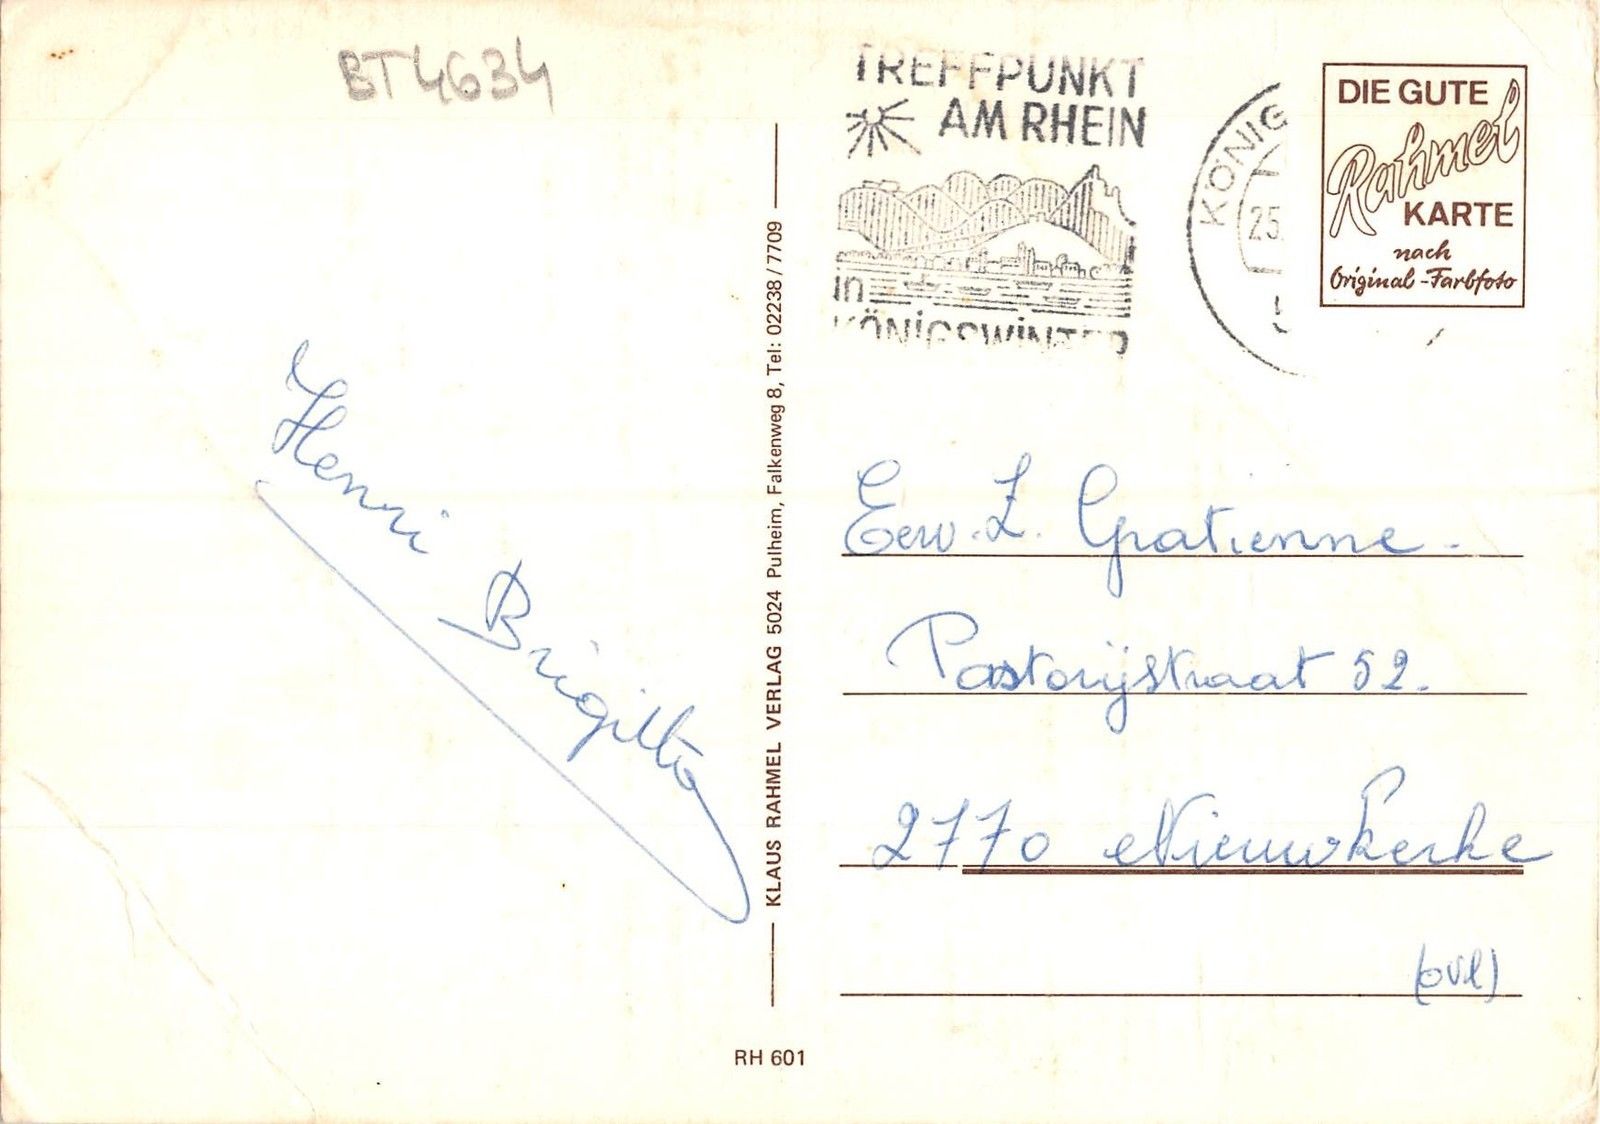 BT4634
TREFFPUNKT
AM RHEIN
in
KÖNIGSWINTER
KÖNIG
25.
DIE GUTE
Rahmel
KARTE
nach
Original-Farbfoto
Henri
Brigitta
KLAUS RAHMEL VERLAG 5024 Pulheim, Falkenweg 8, Tel: 02238/7709
Eerw. Z. Gratienne.
Pastorijstraat 52.
2770 Nieuwkerke
(ovl)
RH 601